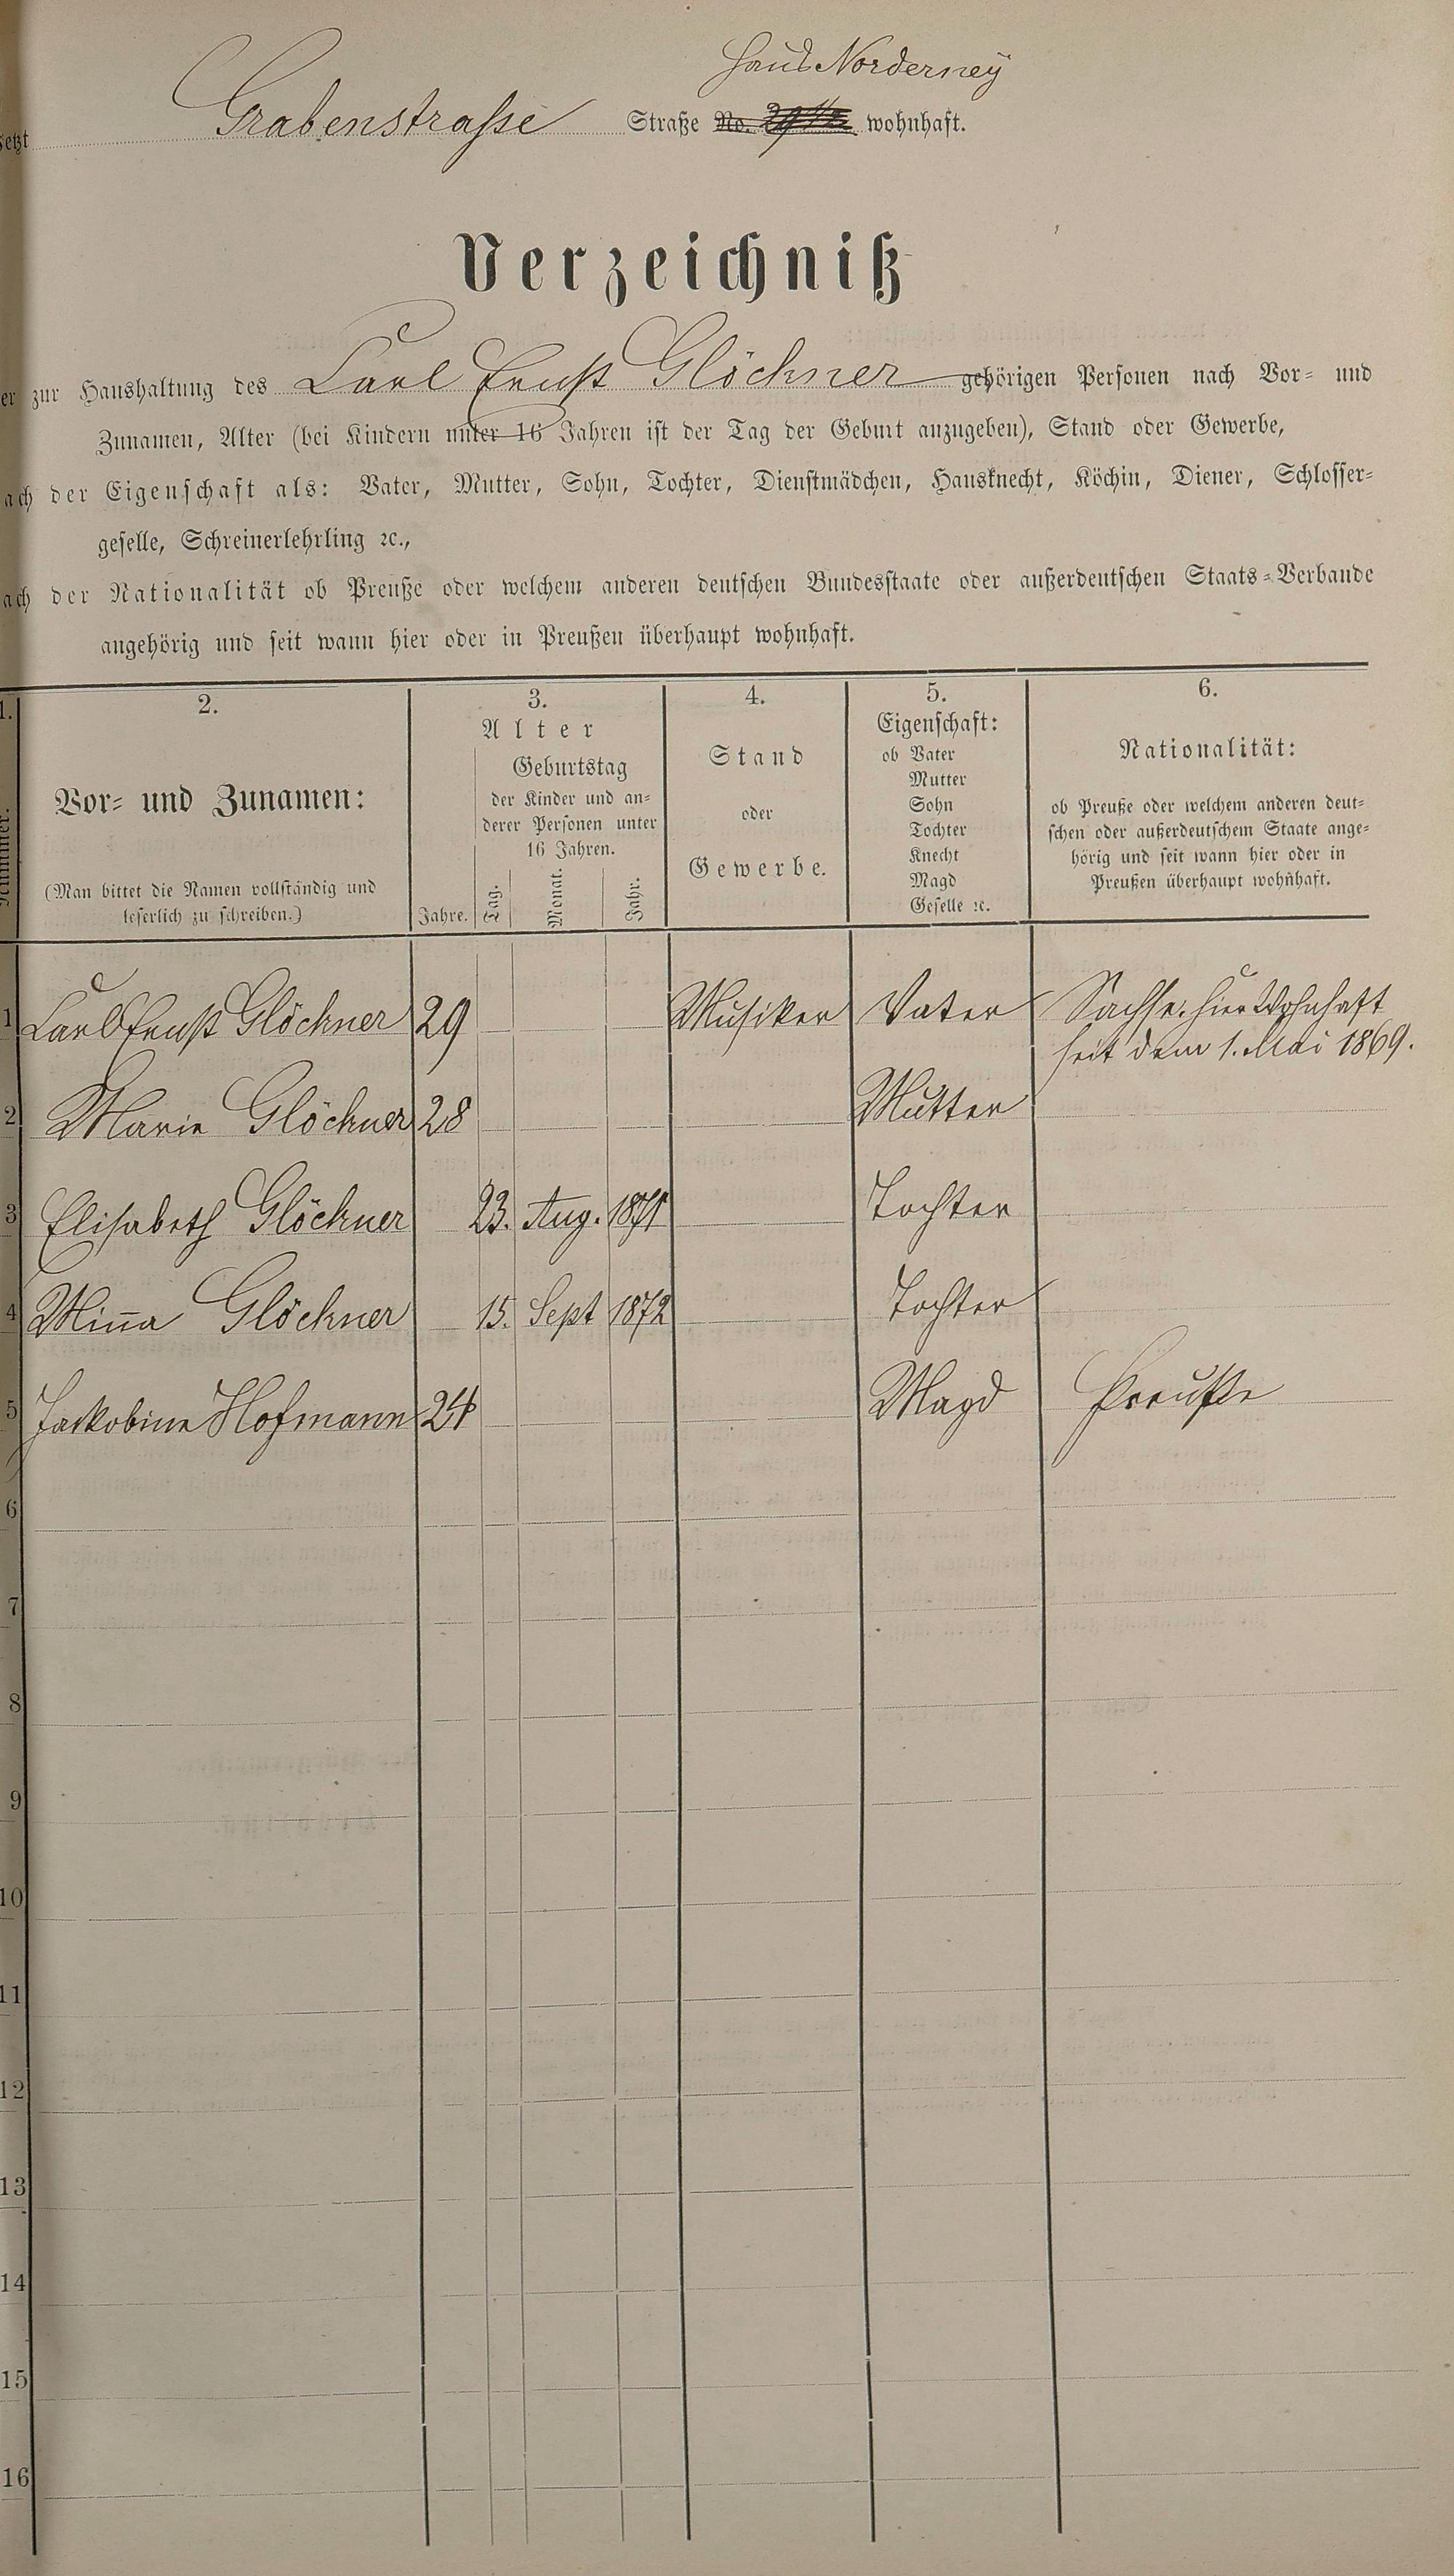 Haus Norderney
setzt Grabenstraße Straße No. wohnhaft.
Verzeichniß
er zur Haushaltung des Carl Ernst Glöckner gehörigen Personen nach Vor- und
Zunamen, Alter (bei Kindern unter 16 Jahren ist der Tag der Geburt anzugeben), Stand oder Gewerbe,
ach der Eigenschaft als: Vater, Mutter, Sohn, Tochter, Dienstmädchen, Hausknecht, Köchin, Diener, Schlosser-
geselle, Schreinerlehrling ꝛc.,
ach der Nationalität ob Preuße oder welchem anderen deutschen Bundesstaate oder außerdeutschen Staats-Verbande
angehörig und seit wann hier oder in Preußen überhaupt wohnhaft.
1. 2. 3. 4. 5. 6.
Nummer.
Vor- und Zunamen:
(Man bittet die Namen vollständig und
leserlich zu schreiben.)
Alter
Geburtstag
der Kinder und an-
derer Personen unter
16 Jahren.
Jahre. Tag. Monat. Jahr.
Stand
oder
Gewerbe.
Eigenschaft:
ob Vater
Mutter
Sohn
Tochter
Knecht
Magd
Geselle ꝛc.
Nationalität:
ob Preuße oder welchem anderen deut-
schen oder außerdeutschem Staate ange-
hörig und seit wann hier oder in
Preußen überhaupt wohnhaft.
1 Carl Ernst Glöckner 29 Musiker Vater Sachse. hier Wohnhaft
seit dem 1. Mai 1869.
2 Marie Glöckner 28 Mutter
3 Elisabeth Glöckner 23. Aug. 1871 Tochter
4 Min̄a Glöckner 15. Sept 1872 Tochter
5 Jackobine Hofmann 24 Magd Preuße
6
7
8
9
10
11
12
13
14
15
16